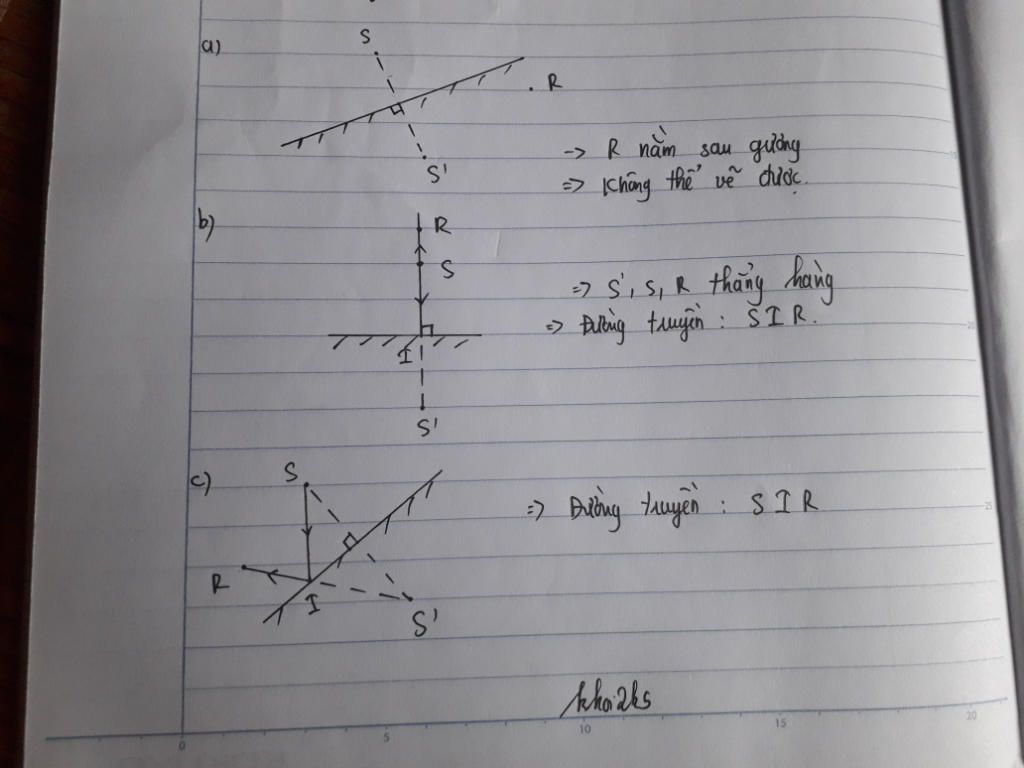 a)
S
R
S'
-> R nằm sau gương
=> Không thể vẽ được.
b)
R
S
I
S'
=> S', S, R thẳng hàng
=> Đường truyền : S I R.
c)
S
R
I
S'
=> Đường truyền : S I R
khoi2k5
0 5 10 15 20
20
25